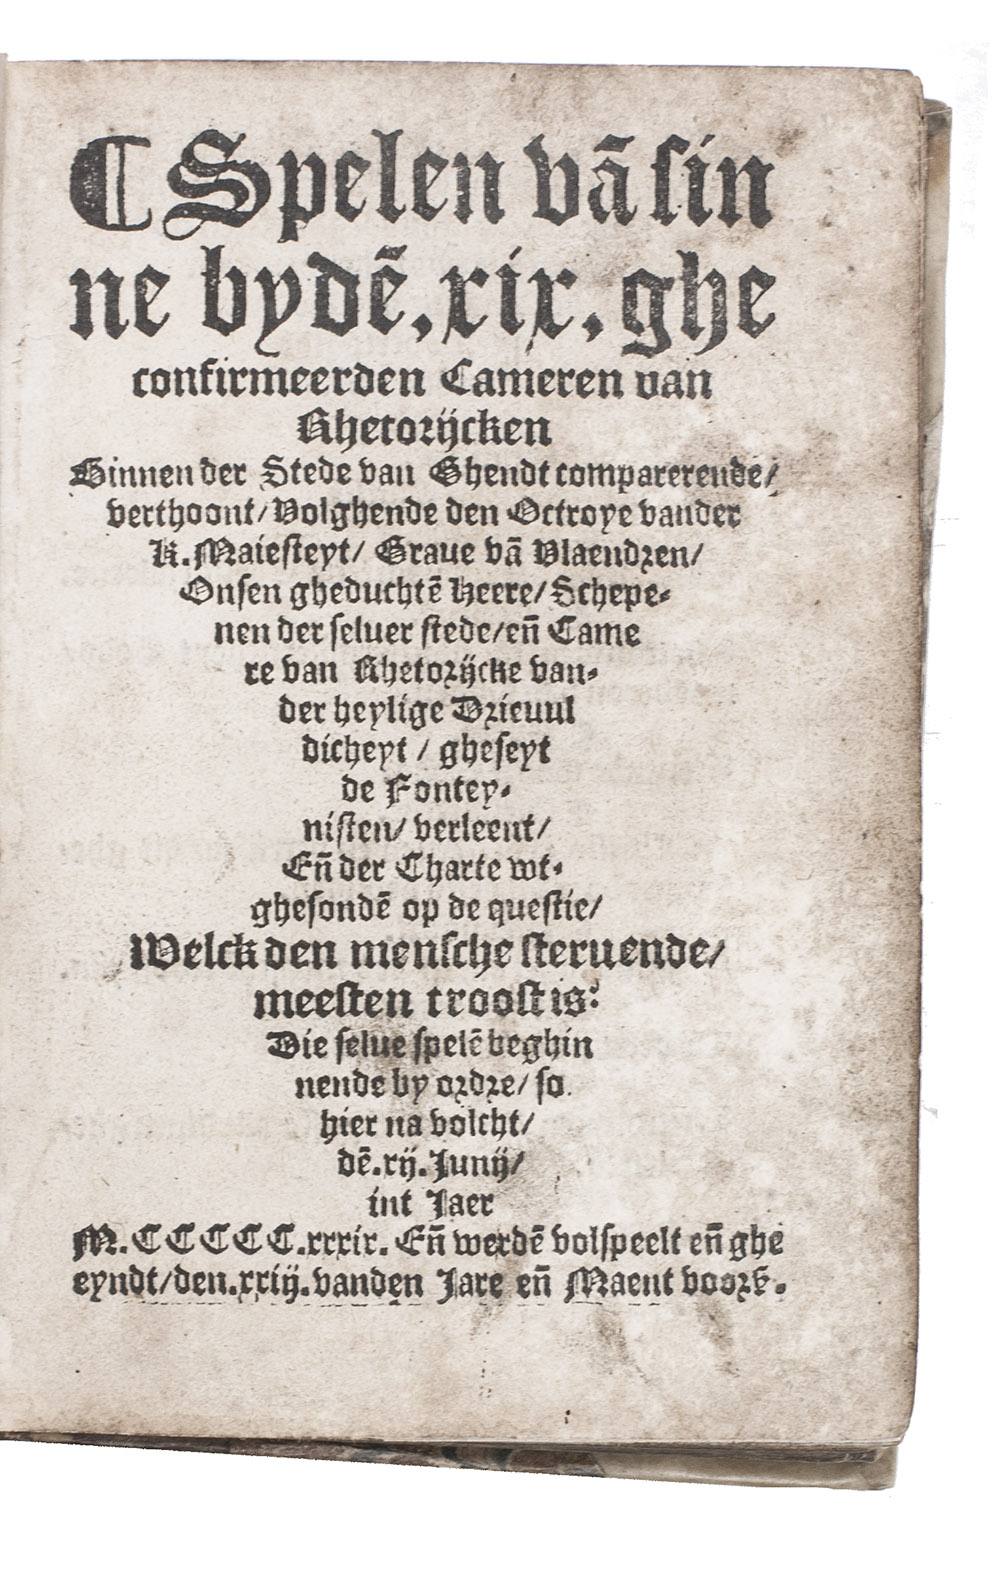 ¶ Spelen vā sin
ne by dē .xix. ghe
confirmeerden Cameren van
Rhetorijcken
Binnen der Stede van Ghendt comparerende/
verthoont/ Volghende den Octroye vander
K. Maiesteyt/ Graue vā Vlaendren/
Onsen gheduchtē Heere/ Schepe-
nen der seluer stede/ eñ Came
re van Rhetorijcke van-
der heylige Drieuul
dicheyt / gheseyt
de Fontey-
nisten/ verleent/
Eñ der Charte wt-
ghesondē op de questie/
Welck den mensche steruende/
meesten troost is?
Die selue spelē beghin
nende by ordre/ so
hier na volcht/
dē .xij. Junij/
int Jaer
M. CCCCC.xxxix. Eñ werdē volspeelt eñ ghe
eyndt/ den .xxiij. vanden Jare eñ Maent voors.